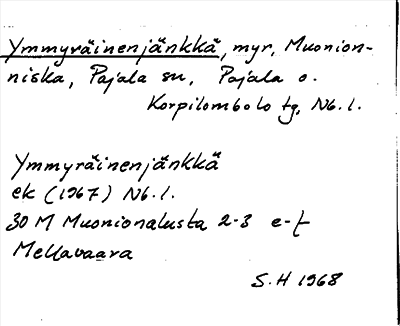 Ymmyräinenjänkkä, myr, Muonion-
niska, Pajala sn, Pajala o.
Korpilombolo tg, Nb. l.
Ymmyräinenjänkkä
ek (1967) Nb. l.
30 M Muonionalusta 2-3 e-f
Mellavaara
S. H 1968